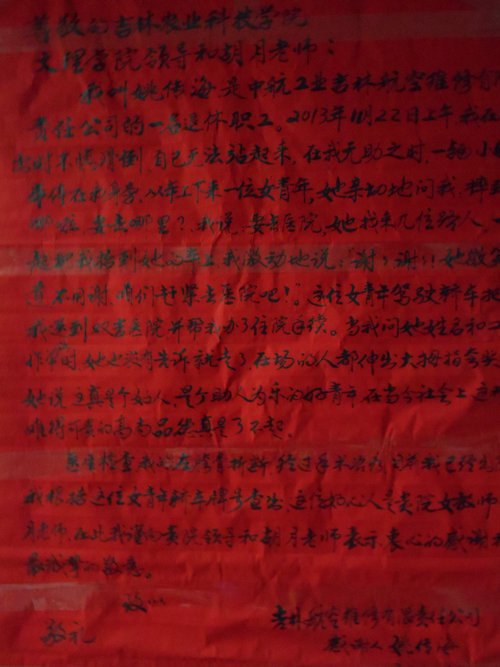 尊敬的吉林农业科技学院
文理学院领导和胡月老师：
我叫姚传海是中航工业吉林航空维修有限
责任公司的一名退休职工。2013年11月22日上午我在
时不慎滑倒，自己无法站起来，在我无助之时，一辆小
车停在我身旁，从车上下来一位女青年，她亲切地问我，摔
哪啦，要去哪里？我说，要去医院，她找来几位路人，一
起把我抬到她的车上，我激动地说：谢谢！她微笑
不用谢，咱们赶紧去医院吧！"。这位女青年驾驶轿车把
我送到医院并帮我办了住院手续。当我问她姓名和工
作时，她也没有告诉就走了，在场的人都伸出大拇指
她说这真是个好人，是个助人为乐的好青年，在当今社会上这
难得可贵的高尚品德真是了不起。
医生检查我经过手术我已
我根据这位女青年轿车牌号查出这位好心人是贵院女教师
月老师，在此我谨向贵院领导和胡月老师表示衷心的感谢和
最诚挚的敬意。
致
敬礼
吉林航空维修有限责任公司
感谢人姚传海